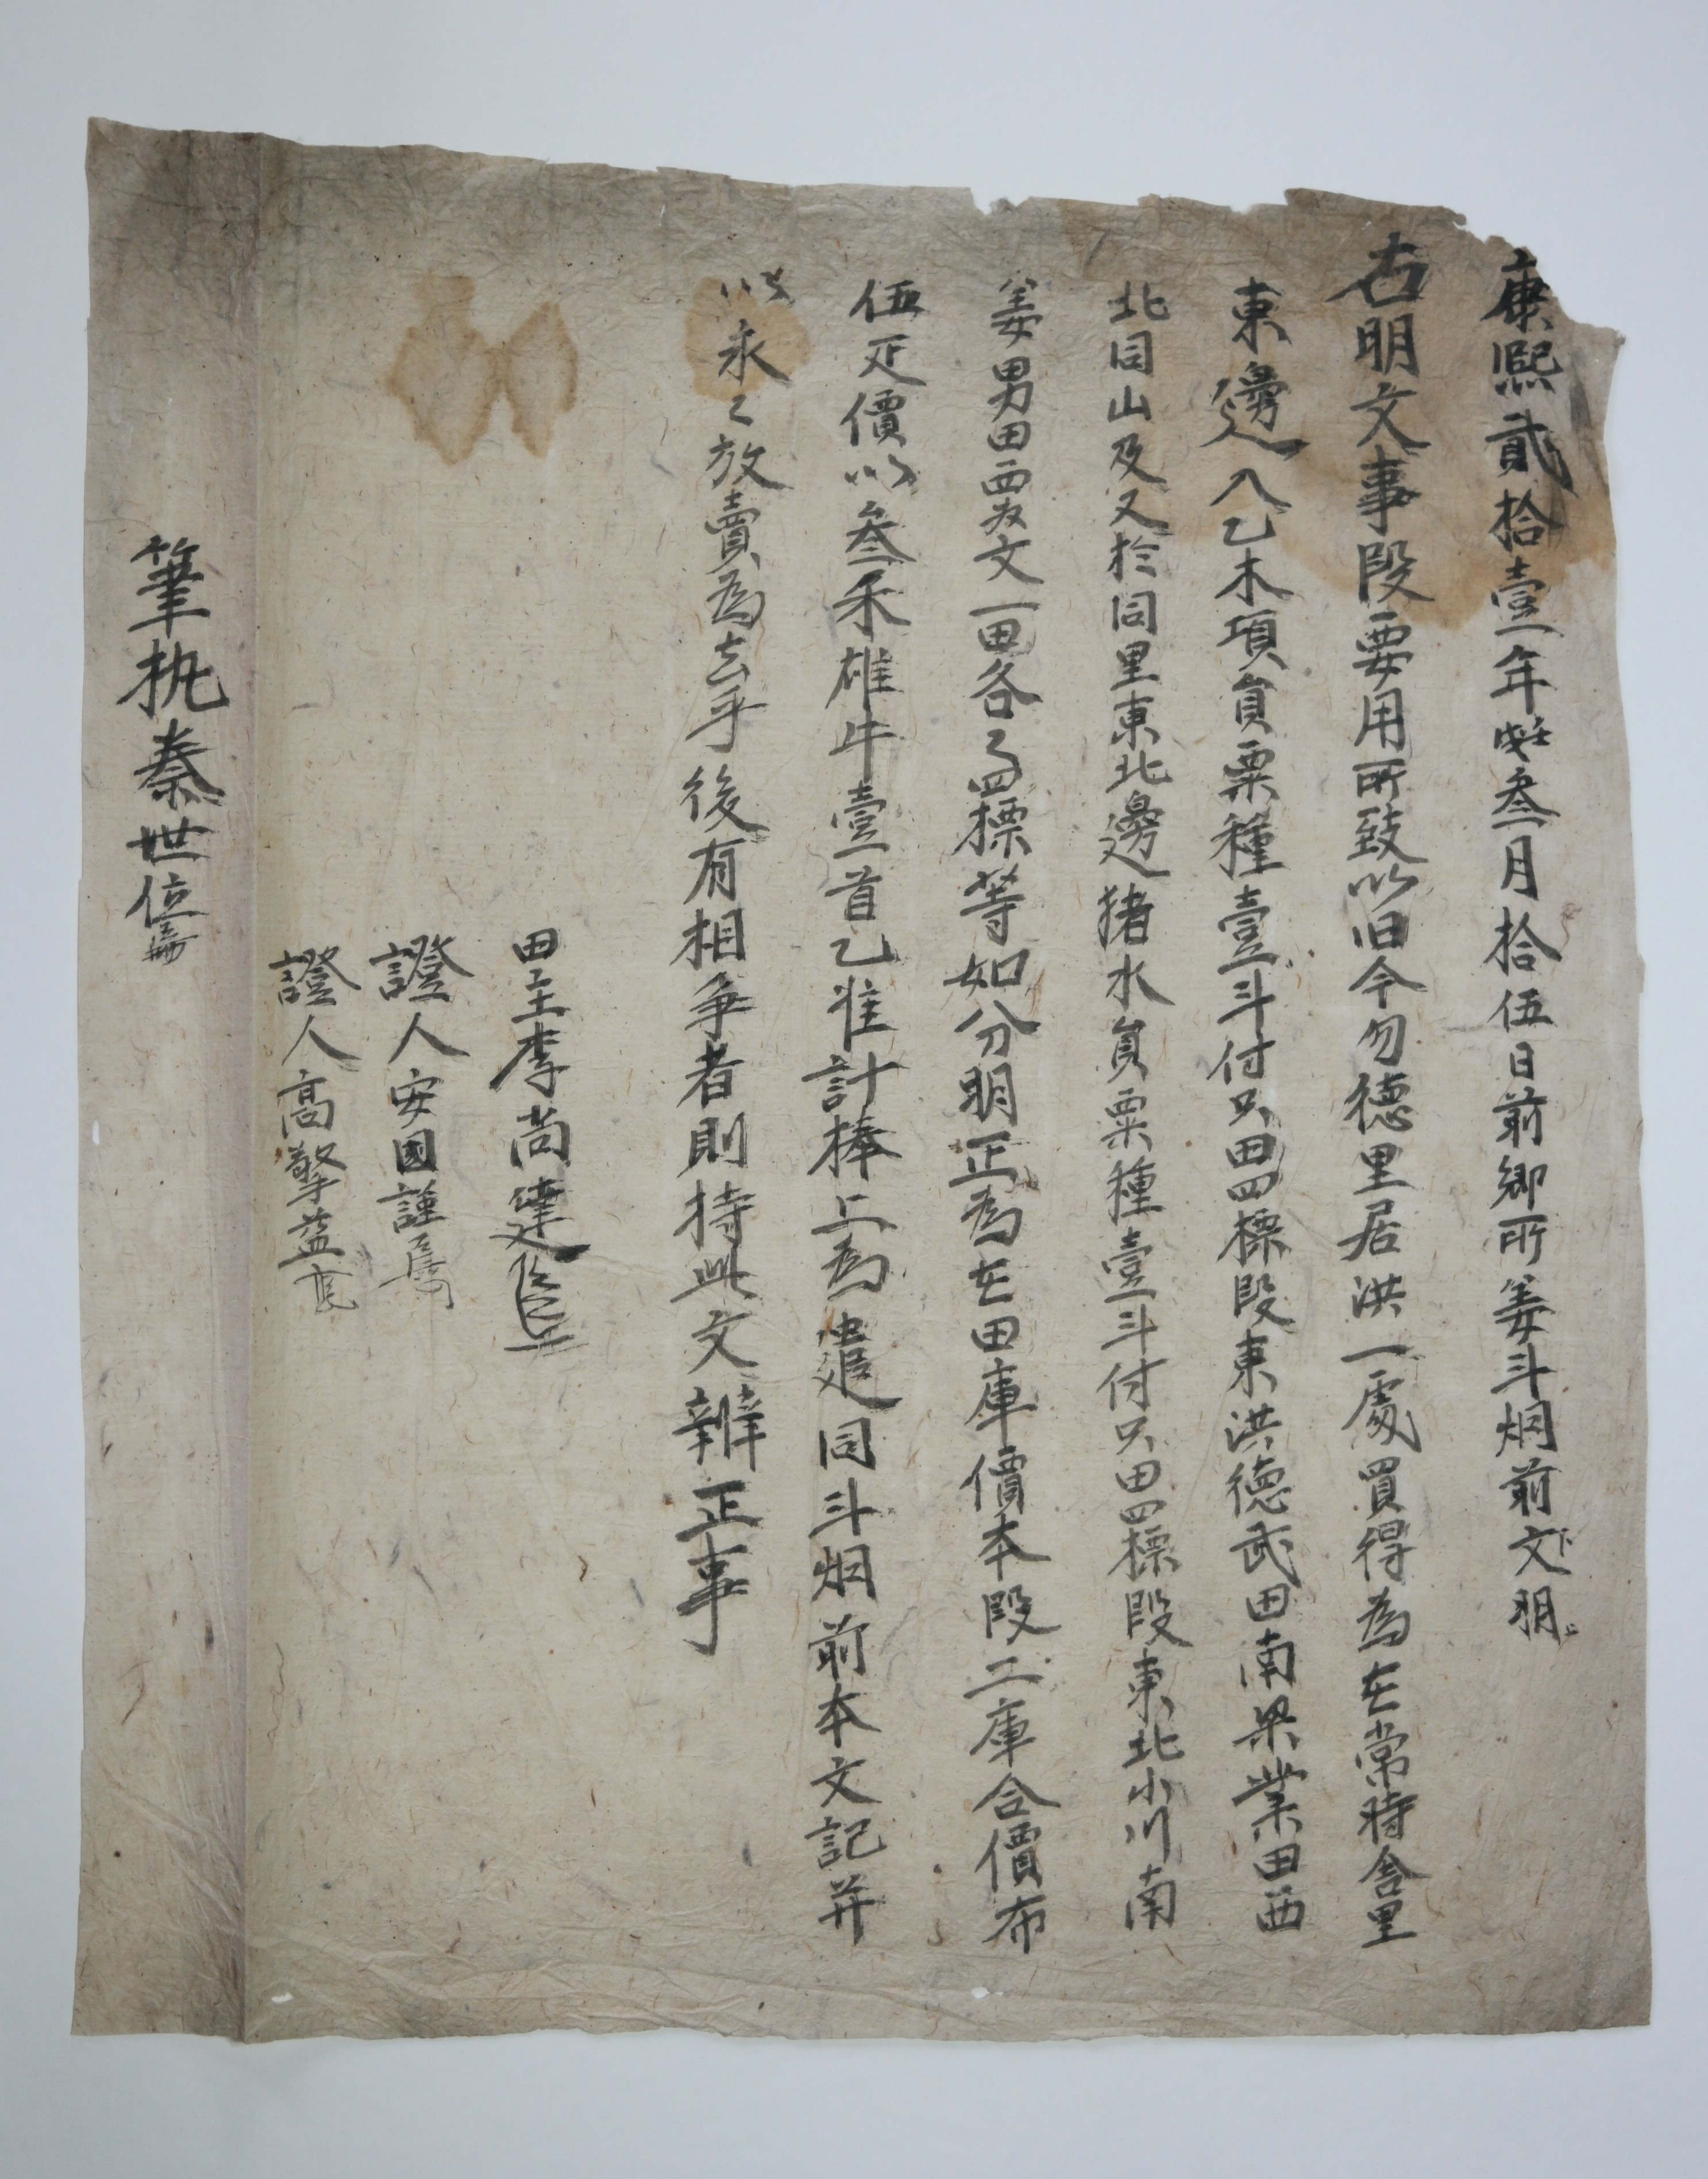 康熙貳拾壹年壬戌叁月拾伍日前鄕所姜斗烟前文明
右明文事段要用所致以旧今勿德里居洪一處買得為在常時舍里
東邊八乙木項員粟種壹斗付只田四標段東洪德武田南梁業田西
北囙山及又於同里東北邊猪水員粟種壹斗付只田四標段東北小川南
姜男田西友文一田各々四標等如分明正為在田庫價本段二庫合價布
伍疋價以叁禾雄牛壹首乙准計捧上為遣同斗烟前本文記并
以永々放賣為去乎後有相爭者則持此文辨正事
田主李尚建
證人安國謹
證人高擎益
筆执秦世位